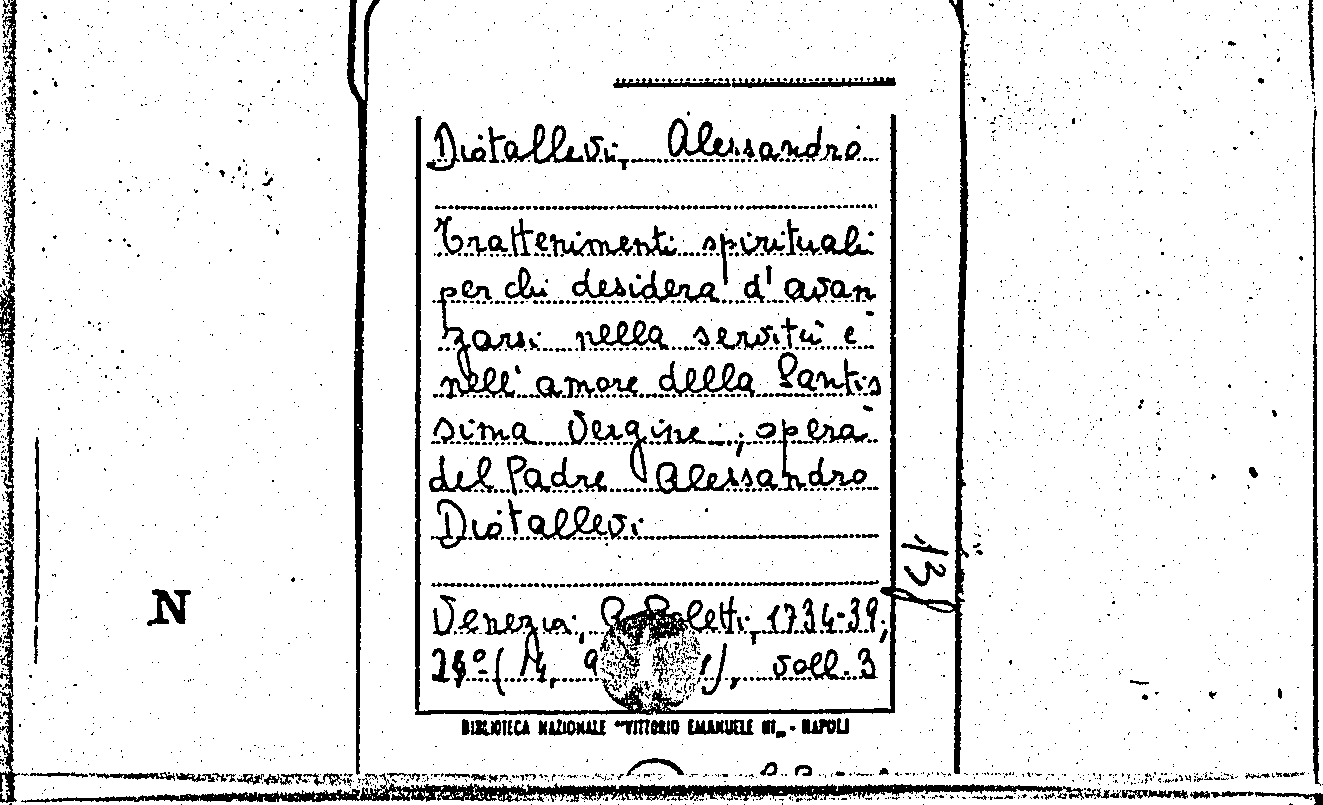 Diotallevi, Alessandro
Trattenimenti spirituali
per chi desidera d'avan
zarsi nella servitù e
nell'amore della Santis
sima Vergine ; opera
del Padre Alessandro
Diotallevi
13f
N
Venezia, 1734-39,
voll. 3
BIBLIOTECA NAZIONALE "VITTORIO EMANUELE III" - NAPOLI